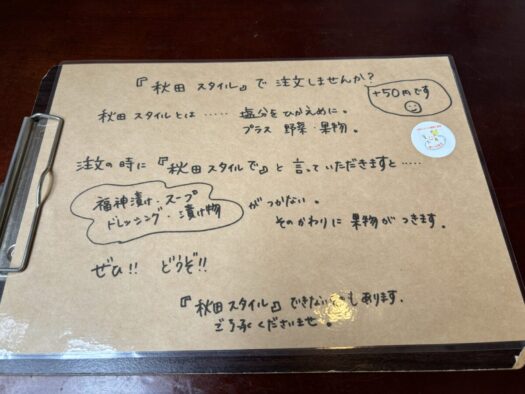 『秋田 スタイル』で 注文しませんか?
+50円です
秋田 スタイル とは …… 塩分を ひかえめに。
プラス 野菜・果物。
注文の 時に 『秋田 スタイルで』と 言って いただきますと……
福神漬け・スープ
ドレッシング・漬け物
が つかない。
そのかわりに 果物が つきます。
ぜひ!! どうぞ!!
『秋田 スタイル』できない もあります.
ご了承くださいませ。